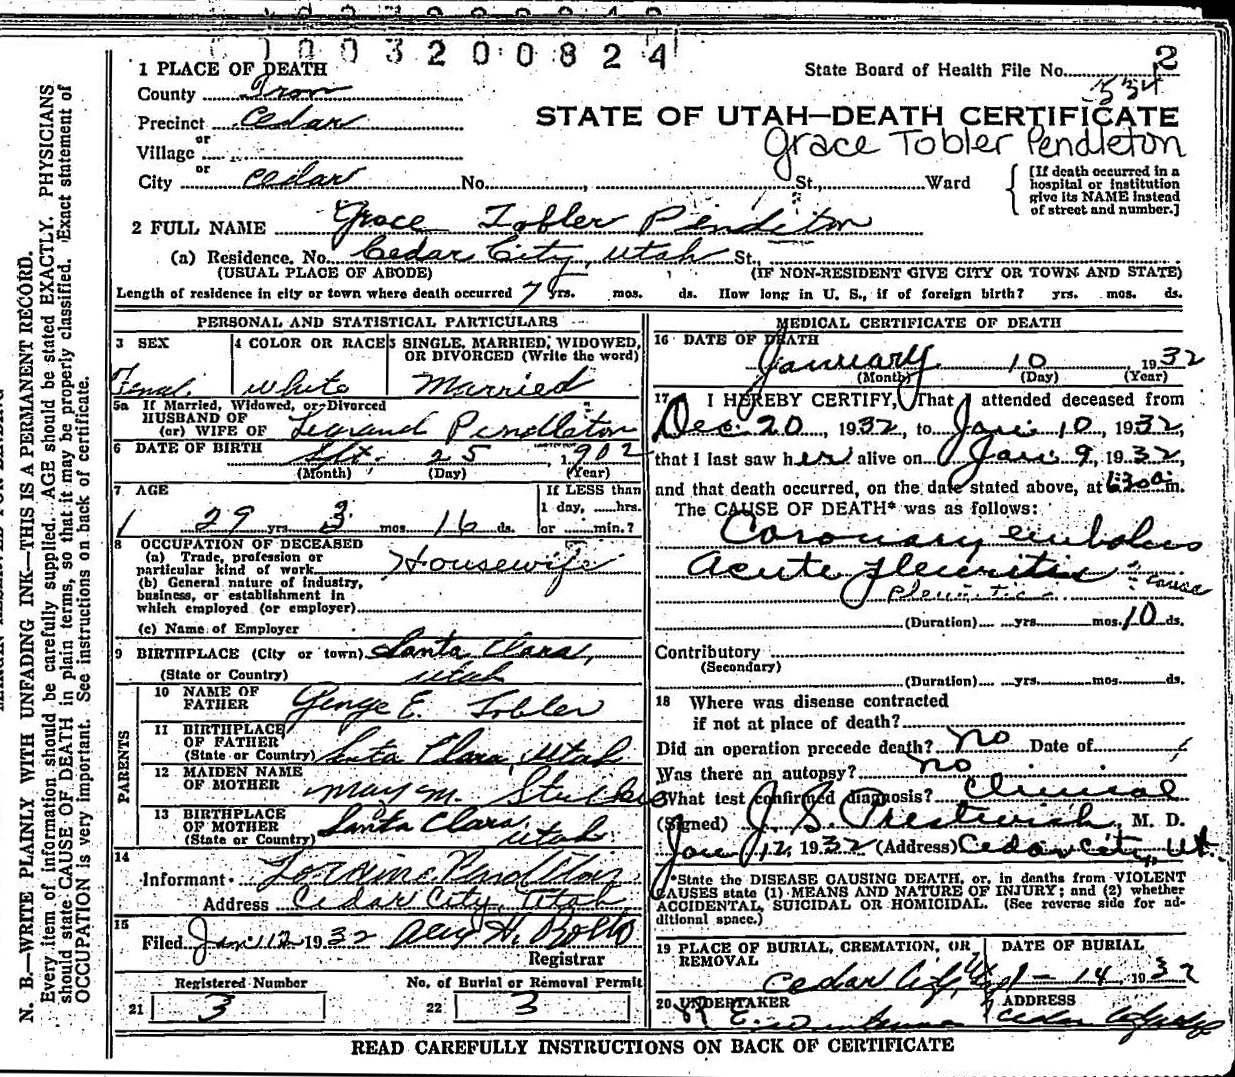 003200824
1 PLACE OF DEATH
State Board of Health File No. 2
County Iron
534
Precinct Cedar
STATE OF UTAH—DEATH CERTIFICATE
or
Village
Grace Tobler Pendleton
or
City Cedar No. , St., Ward
[If death occurred in a hospital or institution give its NAME instead of street and number.]
2 FULL NAME Grace Tobler Pendleton
(a) Residence. No. Cedar City, Utah St.,
(USUAL PLACE OF ABODE) (IF NON-RESIDENT GIVE CITY OR TOWN AND STATE)
Length of residence in city or town where death occurred 7 yrs. mos. ds. How long in U. S., if of foreign birth? yrs. mos. ds.
PERSONAL AND STATISTICAL PARTICULARS
3 SEX
4 COLOR OR RACE
5 SINGLE, MARRIED, WIDOWED, OR DIVORCED (Write the word)
Femal. white Married
5a If Married, Widowed, or Divorced
HUSBAND OF
(or) WIFE OF Legrand Pendleton
6 DATE OF BIRTH Spt. 25 1902
(Month) (Day) (Year)
7 AGE
If LESS than
1 day, hrs.
29 yrs 3 mos 16 ds. or min.?
8 OCCUPATION OF DECEASED
(a) Trade, profession or
particular kind of work Housewife
(b) General nature of industry,
business, or establishment in
which employed (or employer)
(c) Name of Employer
9 BIRTHPLACE (City or town) Santa Clara,
(State or Country) Utah
PARENTS
10 NAME OF
FATHER George E. Tobler
11 BIRTHPLACE
OF FATHER
(State or Country) Santa Clara, Utah
12 MAIDEN NAME
OF MOTHER May M.
13 BIRTHPLACE
OF MOTHER
(State or Country) Santa Clara, Utah
14
Informant Pendleton
Address Cedar City, Utah
15
Filed Jan 12 1932 H.
Registrar
Registered Number No. of Burial or Removal Permit
21 3 22 3
MEDICAL CERTIFICATE OF DEATH
16 DATE OF DEATH
January 10 1932
(Month) (Day) (Year)
17 I HEREBY CERTIFY, That I attended deceased from
Dec. 20, 1932, to Jan. 10, 1932,
that I last saw her alive on Jan. 9, 1932,
and that death occurred, on the date stated above, at 6:30 a. m.
The CAUSE OF DEATH* was as follows:
Coronary embolus
Acute pleuritis cause
pleuritis
(Duration) yrs. mos. 10 ds.
Contributory
(Secondary)
(Duration) yrs. mos. ds.
18 Where was disease contracted
if not at place of death?
Did an operation precede death? no Date of
Was there an autopsy? no
What test confirmed diagnosis? Clinical
(Signed) J. S. Prestwich, M. D.
Jan 12, 1932 (Address) Cedar City, Ut.
*State the DISEASE CAUSING DEATH, or, in deaths from VIOLENT
CAUSES state (1) MEANS AND NATURE OF INJURY; and (2) whether
ACCIDENTAL, SUICIDAL OR HOMICIDAL. (See reverse side for additional space.)
19 PLACE OF BURIAL, CREMATION, OR
REMOVAL
DATE OF BURIAL
Cedar City, 1-14 1932
20 UNDERTAKER ADDRESS
Cedar City
READ CAREFULLY INSTRUCTIONS ON BACK OF CERTIFICATE
N. B.—WRITE PLAINLY WITH UNFADING INK—THIS IS A PERMANENT RECORD.
Every item of information should be carefully supplied. AGE should be stated EXACTLY. PHYSICIANS
should state CAUSE OF DEATH in plain terms, so that it may be properly classified. Exact statement of
OCCUPATION is very important. See instructions on back of certificate.